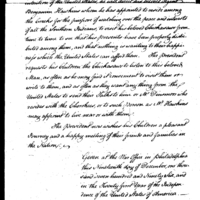 intention of the United States he will direct our beloved Agent
Benjamin Hawkins whom he has appointed to reside among
the Creeks for the purpose of watching over the peace and interests
of all the Southern Indians to visit his beloved Cherokees from
time to time to see that his presents have been properly distri
buted among them, and that nothing is wanting to their happi-
ness which the United States can afford them. The president
requests his Children the Cherokees to listen to this beloved
Man, as often as he may find it convenient to visit them or
write to them, and as often as they want any thing from the
United States to send their Talks to him or Mr. Dinsmoor who
resides with the Cherokees, or to such person as Mr. Hawkins
may appoint to live near or with them.
The president now wishes his Children a pleasant
Journey and a happy meeting of their friends and families in
the Nation.
Given at the War Office in Philadelphia
this Nineteenth day of December, one thou
sand seven hundred and Ninety six, and
in the Twenty first Year of the Indepen
dence of the United States of America